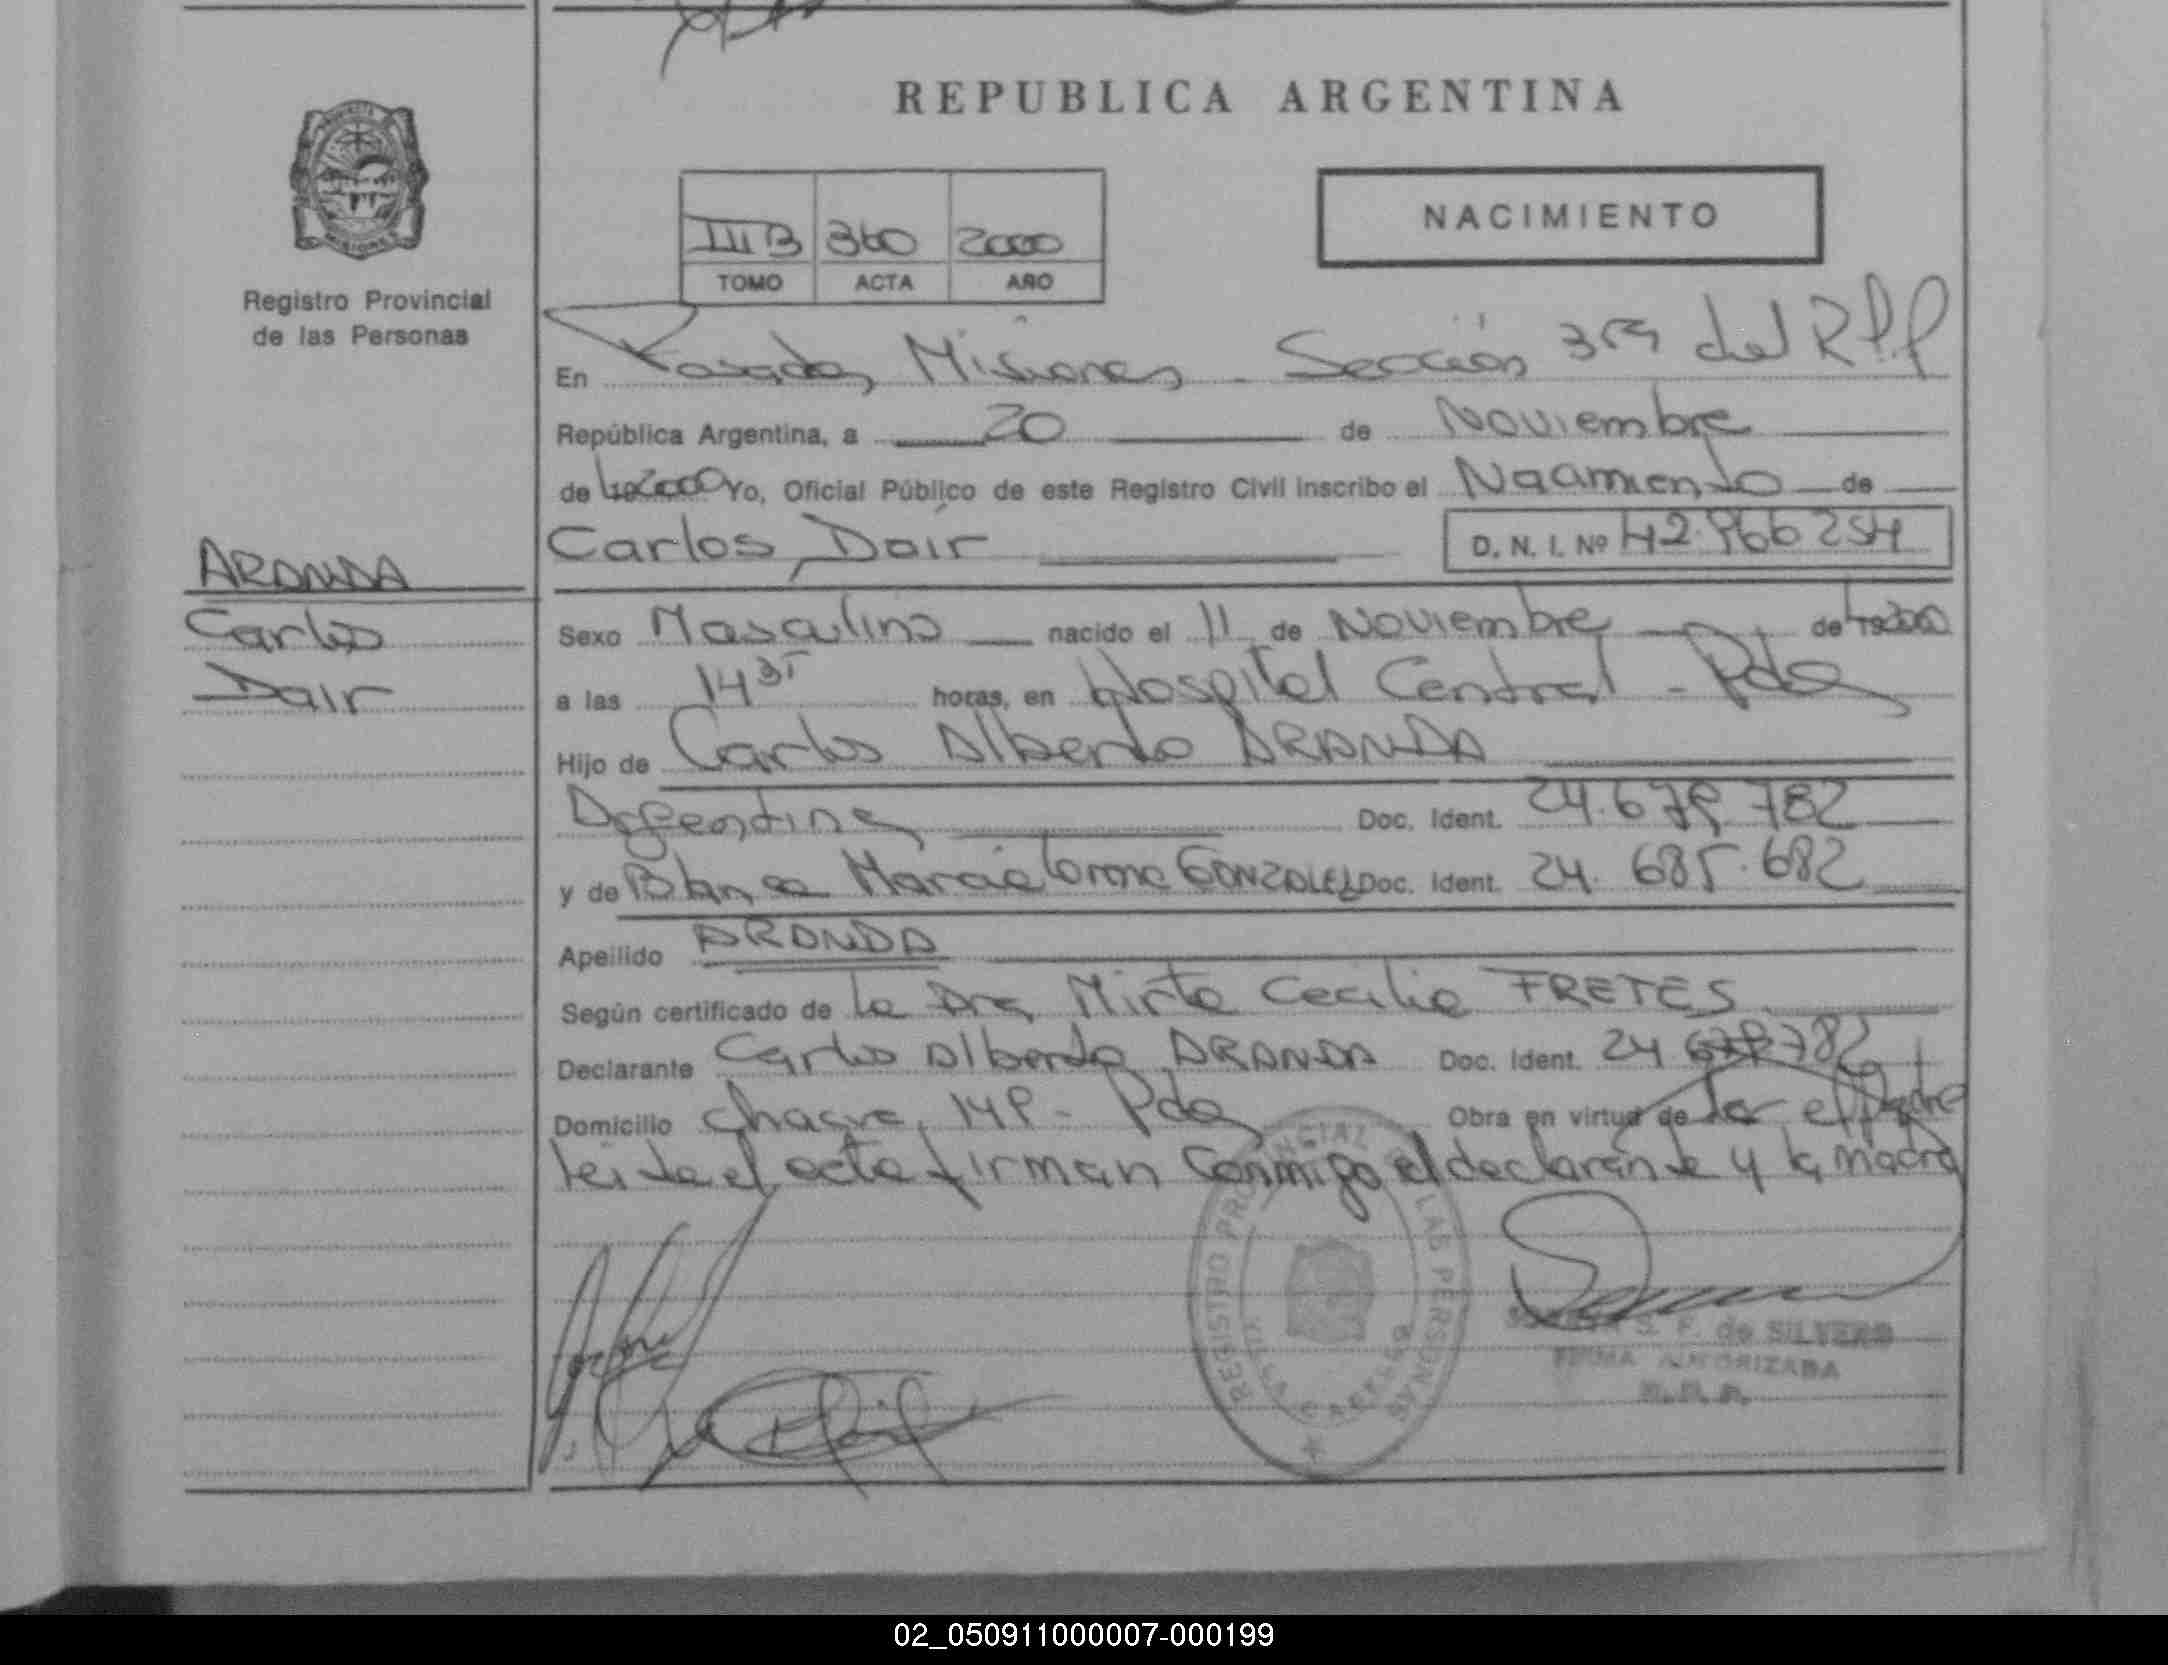 REPUBLICA ARGENTINA
NACIMIENTO
III B 360 2000
TOMO ACTA AÑO
Registro Provincial
de las Personas
En Posadas, Misiones - Sección 3ra del R.P.P
República Argentina, a 20 de Noviembre
de 2000 Yo, Oficial Público de este Registro Civil inscribo el Nacimiento de
Carlos Dair D. N. I. Nº 42.966 254
ARANDA
Carlos
Dair
Sexo Masculino nacido el 11 de Noviembre de 2000
a las 14 35 horas, en Hospital Central - Pdas
Hijo de Carlos Alberto ARANDA
Argentino Doc. Ident. 24.679.782
y de Blanca Lorena GONZALEZ Doc. Ident. 24.685.682
Apellido ARANDA
Según certificado de la Dra Mirta Cecilia FRETES
Declarante Carlos Alberto ARANDA Doc. Ident. 24 679782
Domicilio Chacra 149 - Pdas Obra en virtud de ser el padre
leida el acta firman conmigo el declarante y la madre
REGISTRO PROVINCIAL LAS PERSONAS
S. F. de SILVERO
FIRMA AUTORIZADA
02_050911000007-000199